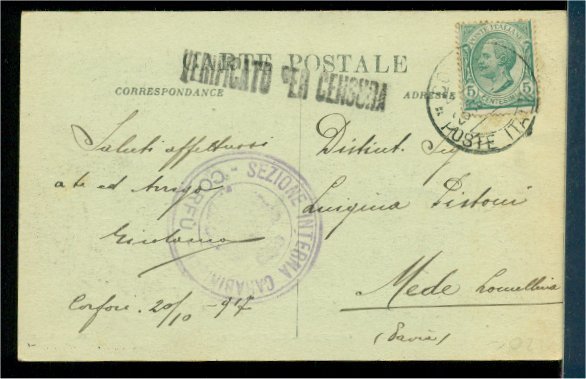 CARTE POSTALE
VERIFICATO PER CENSURA
CORRESPONDANCE
ADRESSE
POSTE ITALIANE
5 5
CENTESIMI
POSTE ITA
Saluti affettuosi
a te ed Arrigo
Girolamo
Corfou. 20/10 - 917
SEZIONE INTERNA CARABIN
CORFU
Distint. Sig
Luigina Pistoni
Mede Lomellina
(Pavia)